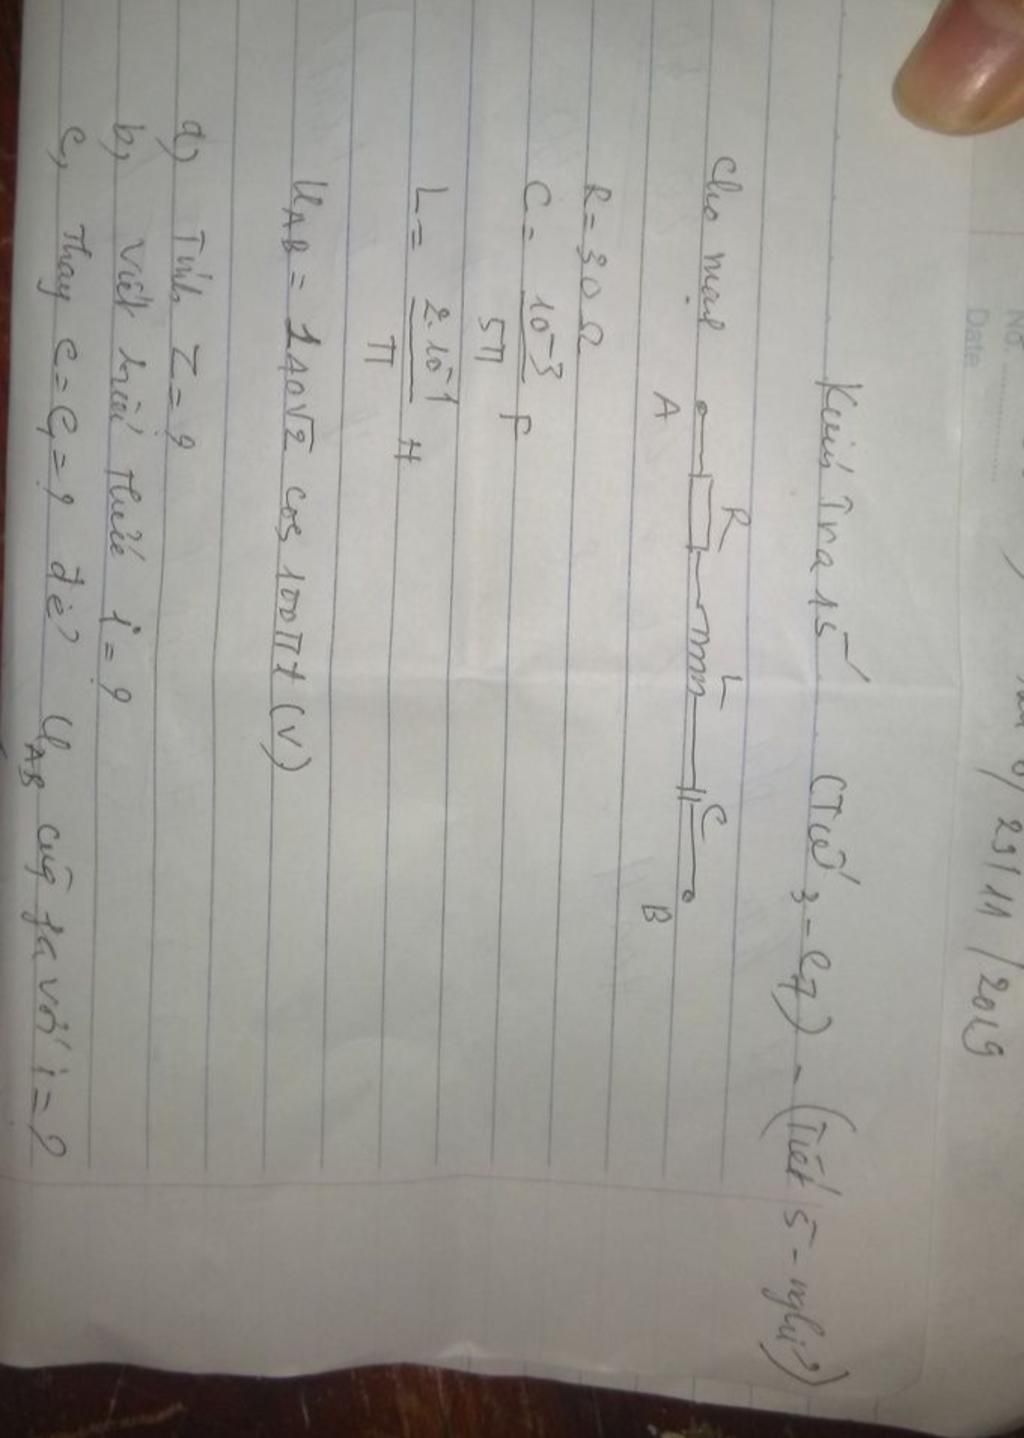 No.
Date
6/29/11/2019
Kiểm Tra 15' (Tiết 3 - C7) - (Tiết 5 - nghỉ)
Cho mạch
R L C
A B
R = 30 Ω
C = 10⁻³/5π F
L = 2.10⁻¹/π H
U_AB = 140√2 cos 100πt (V)
a, Tính Z = ?
b, Viết biểu thức i = ?
c, Thay C = C₁ = ? để U_AB cùng fa với i = ?